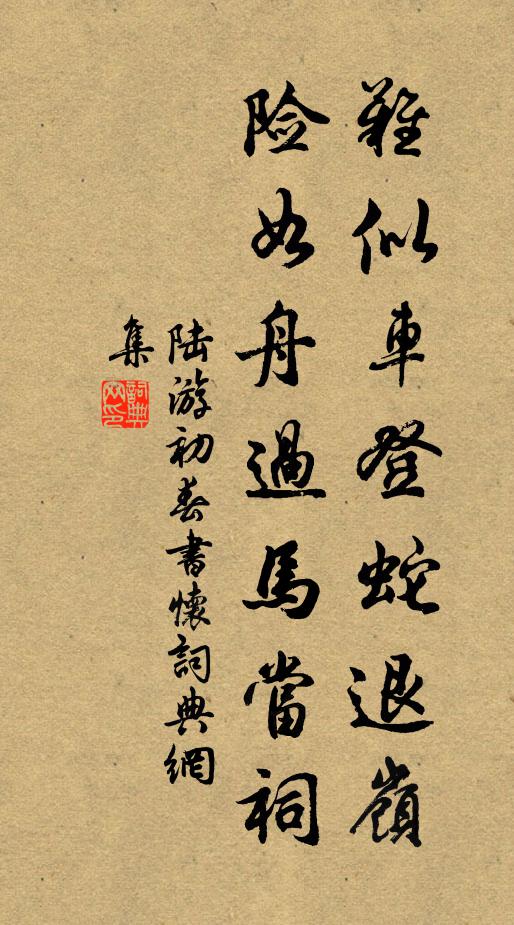 難似車登蛇退嶺
險如舟過馬當祠
陆游初春書懷詞典網
集
詞典网印